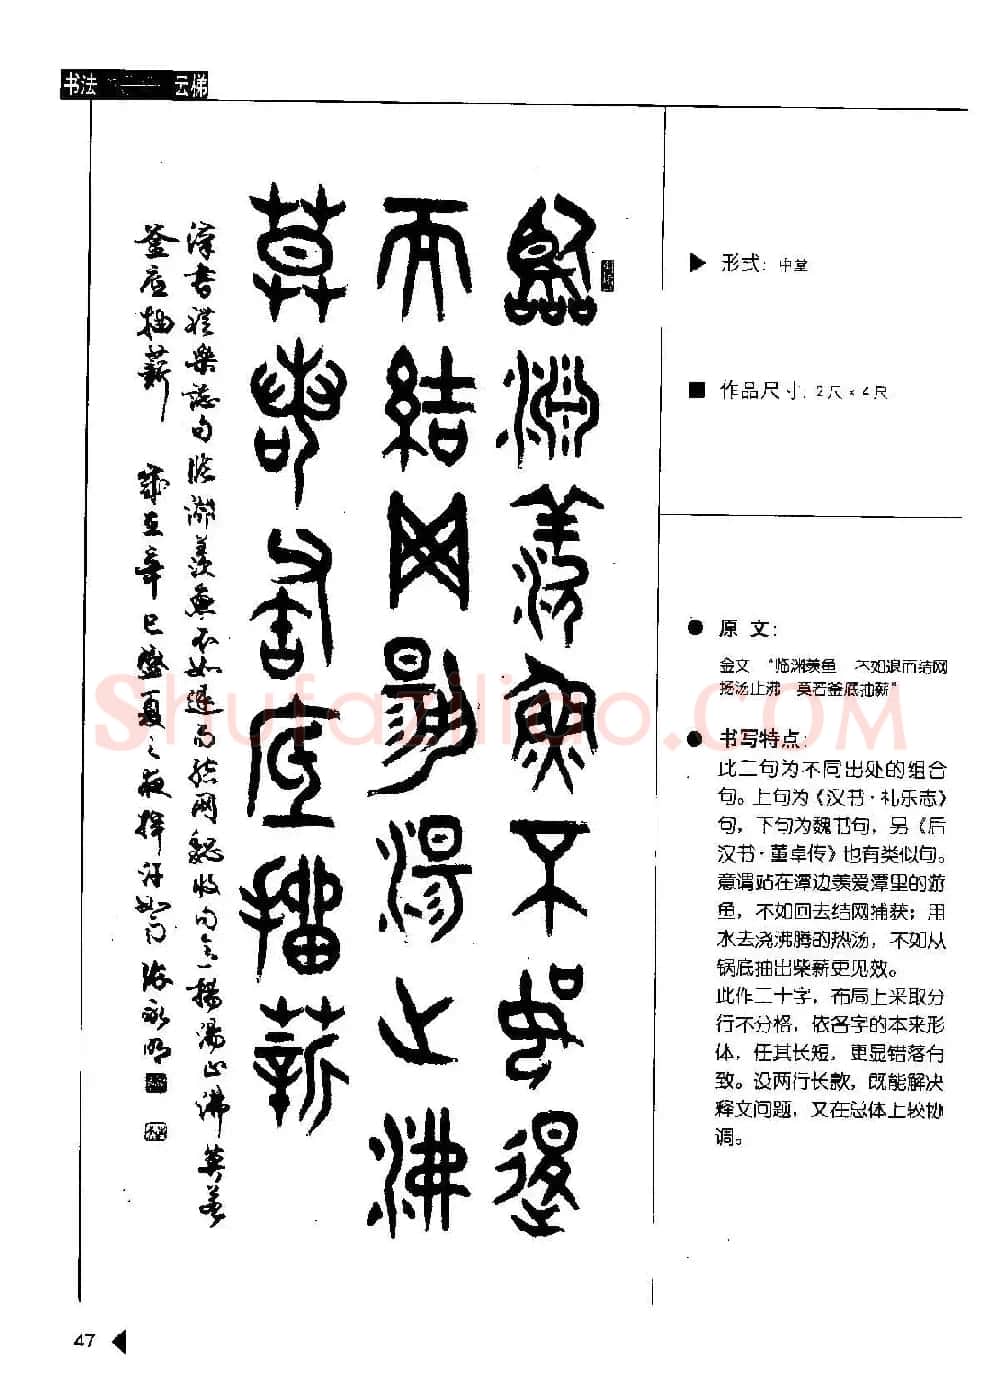 书法
云梯
臨淵羨魚不如退
而結网揚湯止沸
莫若釜底抽薪
漢書禮樂志句臨淵羨魚不如退而結網魏收句云揚湯止沸莫若
釜底抽薪 歲在辛巳盛夏之夜揮汗
形式：中堂
作品尺寸：2尺×4尺
原文：
金文 “临渊羡鱼 不如退而结网
扬汤止沸 莫若釜底抽薪”
书写特点：
此二句为不同出处的组合
句。上句为《汉书·礼乐志》
句，下句为魏书句，另《后
汉书·董卓传》也有类似句。
意谓站在潭边羡爱潭里的游
鱼，不如回去结网捕获；用
水去浇沸腾的热汤，不如从
锅底抽出柴薪更见效。
此作二十字，布局上采取分
行不分格，依各字的本来形
体，任其长短，更显错落有
致。没两行长款，既能解决
释文问题，又在总体上较协
调。
Shufaziliao.COM
47